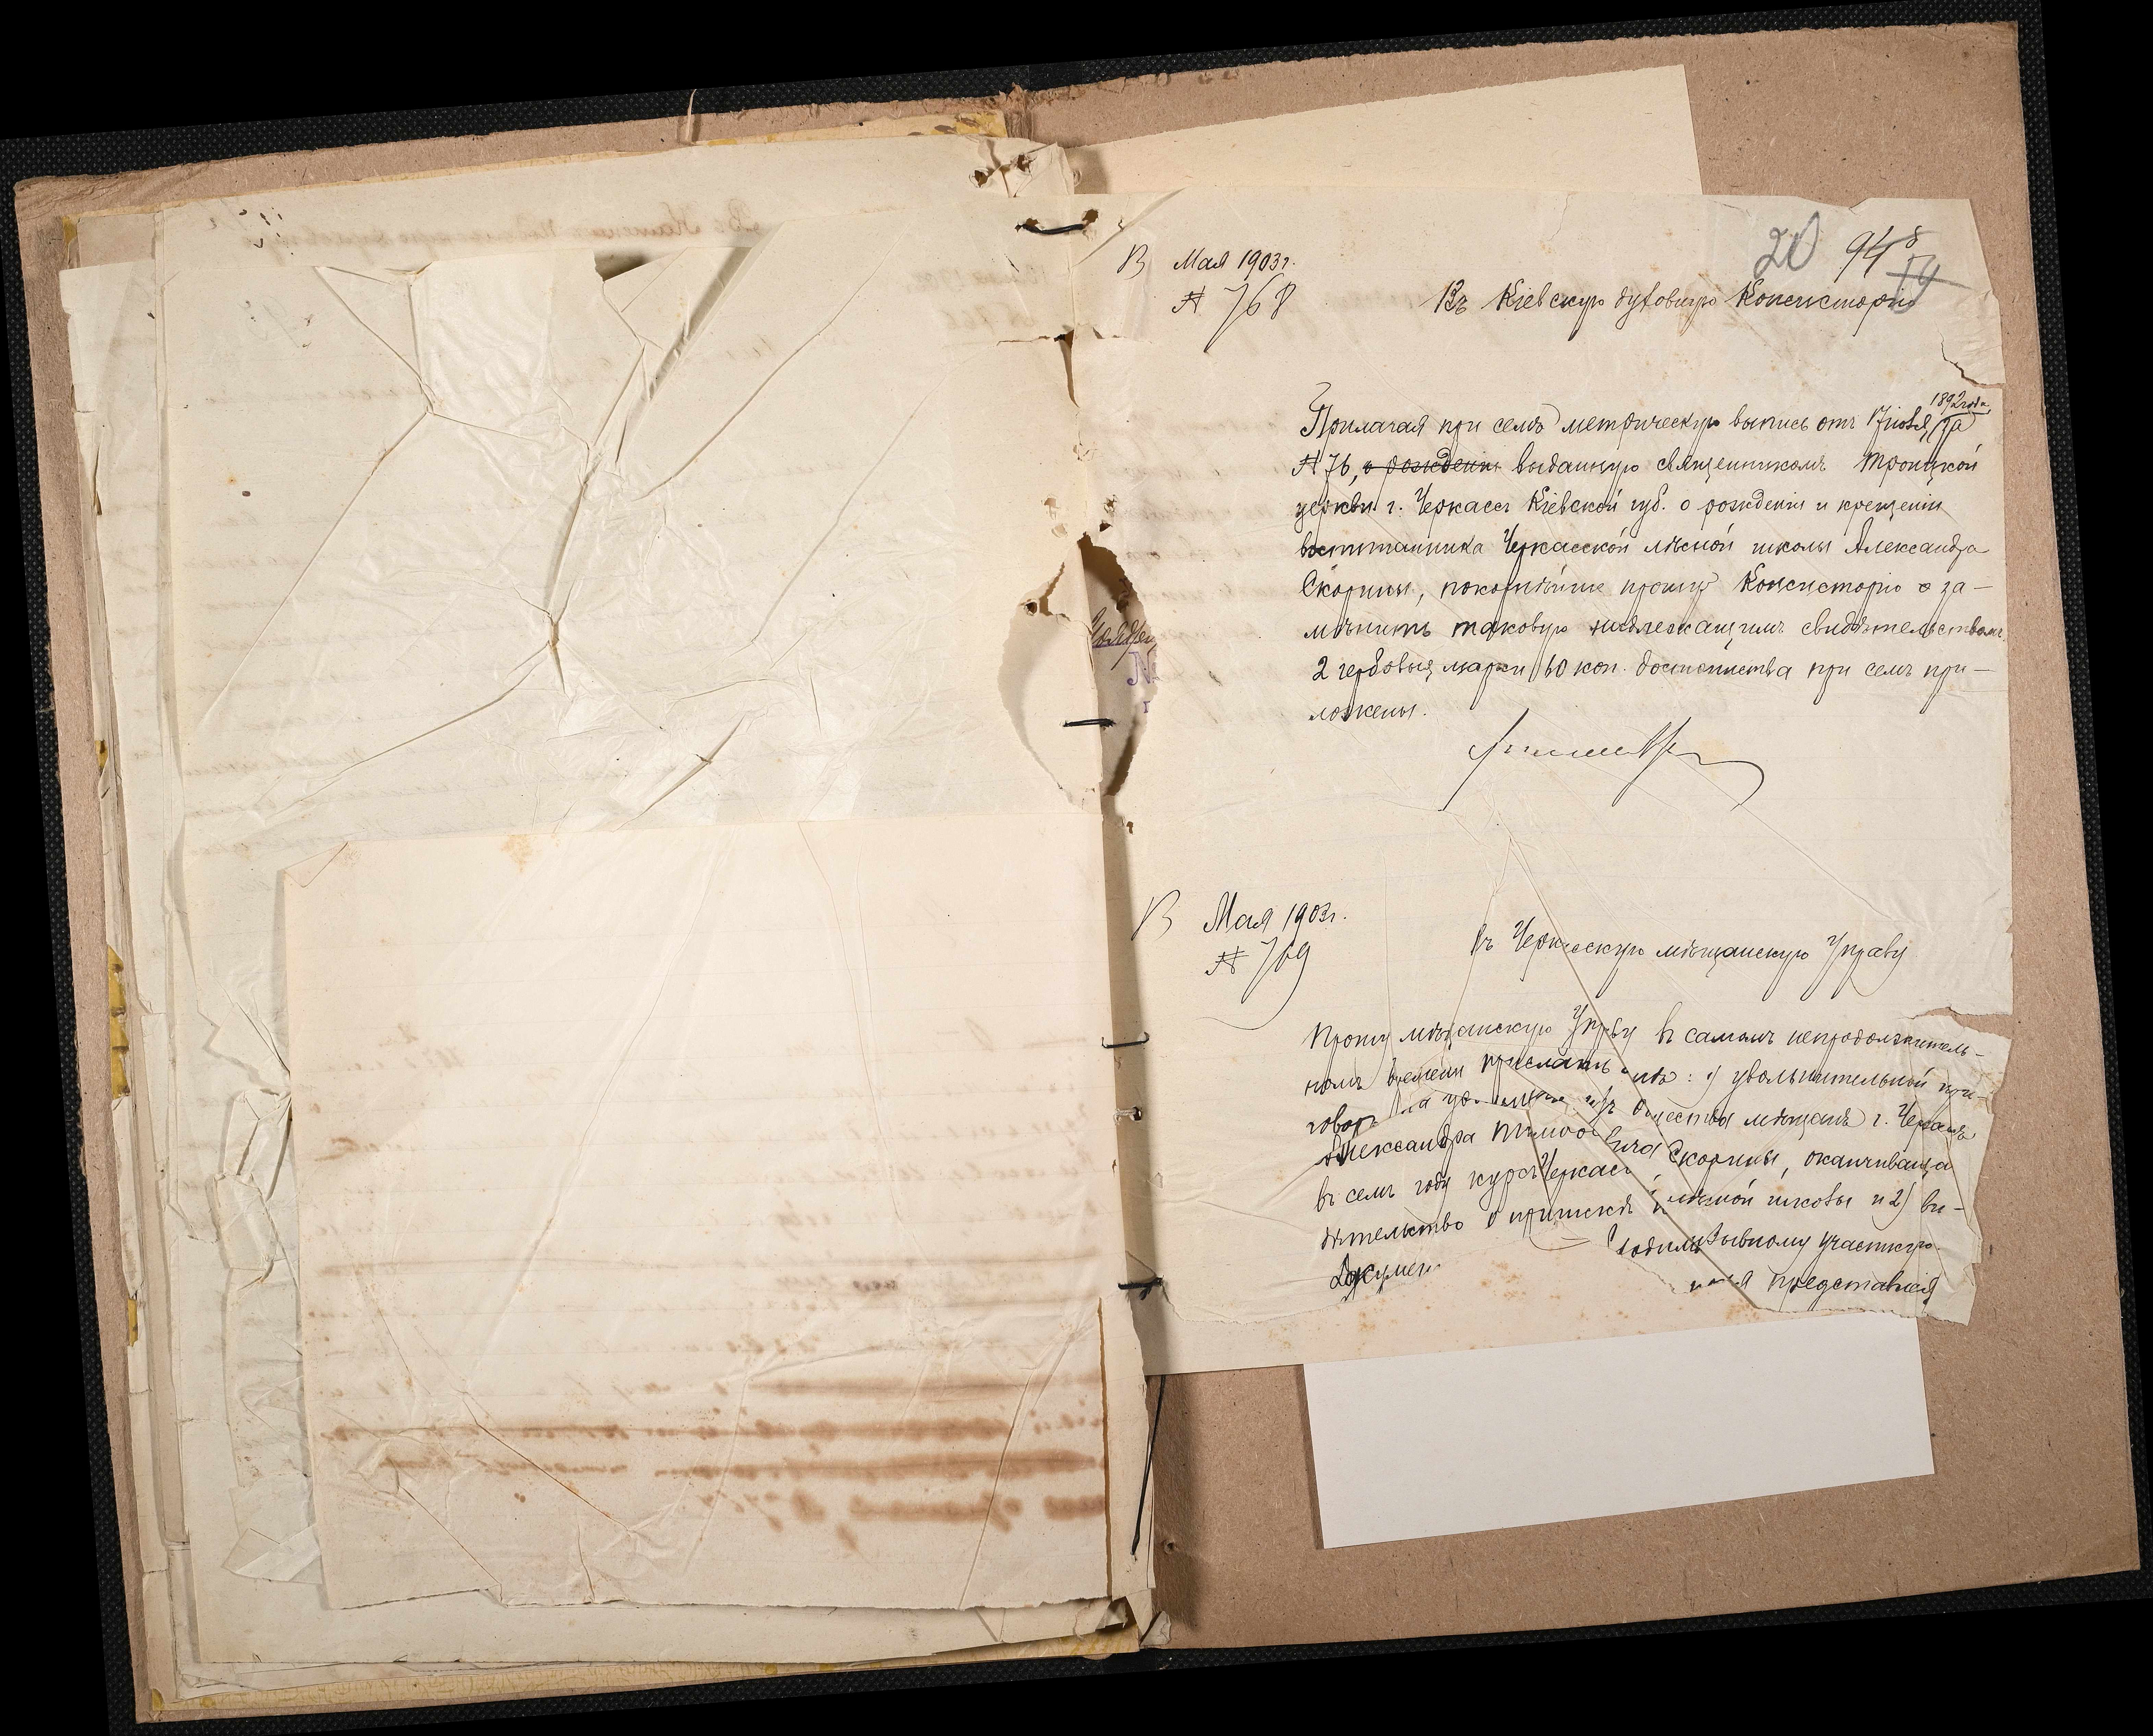 20 94
13 Мая 1903г.
№ 768
Въ Кіевскую духовную Консисторію
1892 года
Прилагая при семъ метрическую выпись отъ 17 іюля, за
№ 76, о рожденіи выданную священникомъ Троицкой
церкви г. Черкассъ Кіевской губ. о рожденіи и крещеніи
воспитанника Черкасской лѣсной школы Александра
Скорины, покорнѣйше прошу Консисторію о за-
мѣнить таковую надлежащимъ свидѣтельствомъ.
2 гербовыя марки 60 коп. достоинства при семъ при-
ложены.
13 Мая 1903г.
№ 769
Въ Черкасскую мѣщанскую Управу
Прошу мѣщанскую Управу въ самомъ непродолжитель-
номъ времени прислать мнѣ: 1) увольнительный при-
говоръ на изъ общества мѣщанъ г. Черкассъ
Александра Скорины, оканчивающа
въ семъ году курсъ Черкасс лѣсной школы и 2) сви-
дѣтельство о припискѣ участку.
Докумен представлен